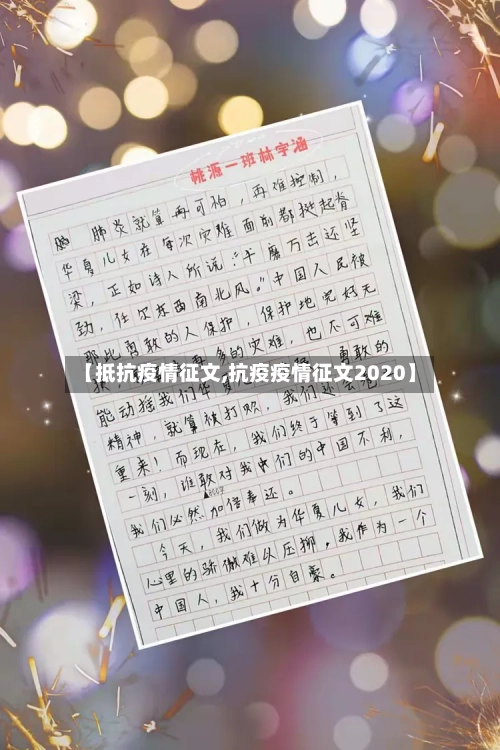 桃源一班林宇涵
肺炎就算再可怕，再难控制，
华夏儿女在每次灾难面前都挺起脊
梁，正如诗人所说："千磨万击还坚
劲，任尔东西南北风。"中国人民被
那些勇敢的人保护，保护地完好无
多的灾难，也不可难
【抵抗疫情征文,抗疫疫情征文2020】
能动摇我们华夏
勇敢的
精神，就算被打败，我们还会卷
重来！而现在，我们终于等到了这
一刻，谁敢对我们的中国不利，
我们必然加倍奉还。
今天，我们做为华夏儿女，我们
心里的骄傲难以压抑，我作为一个
中国人，我十分自豪。